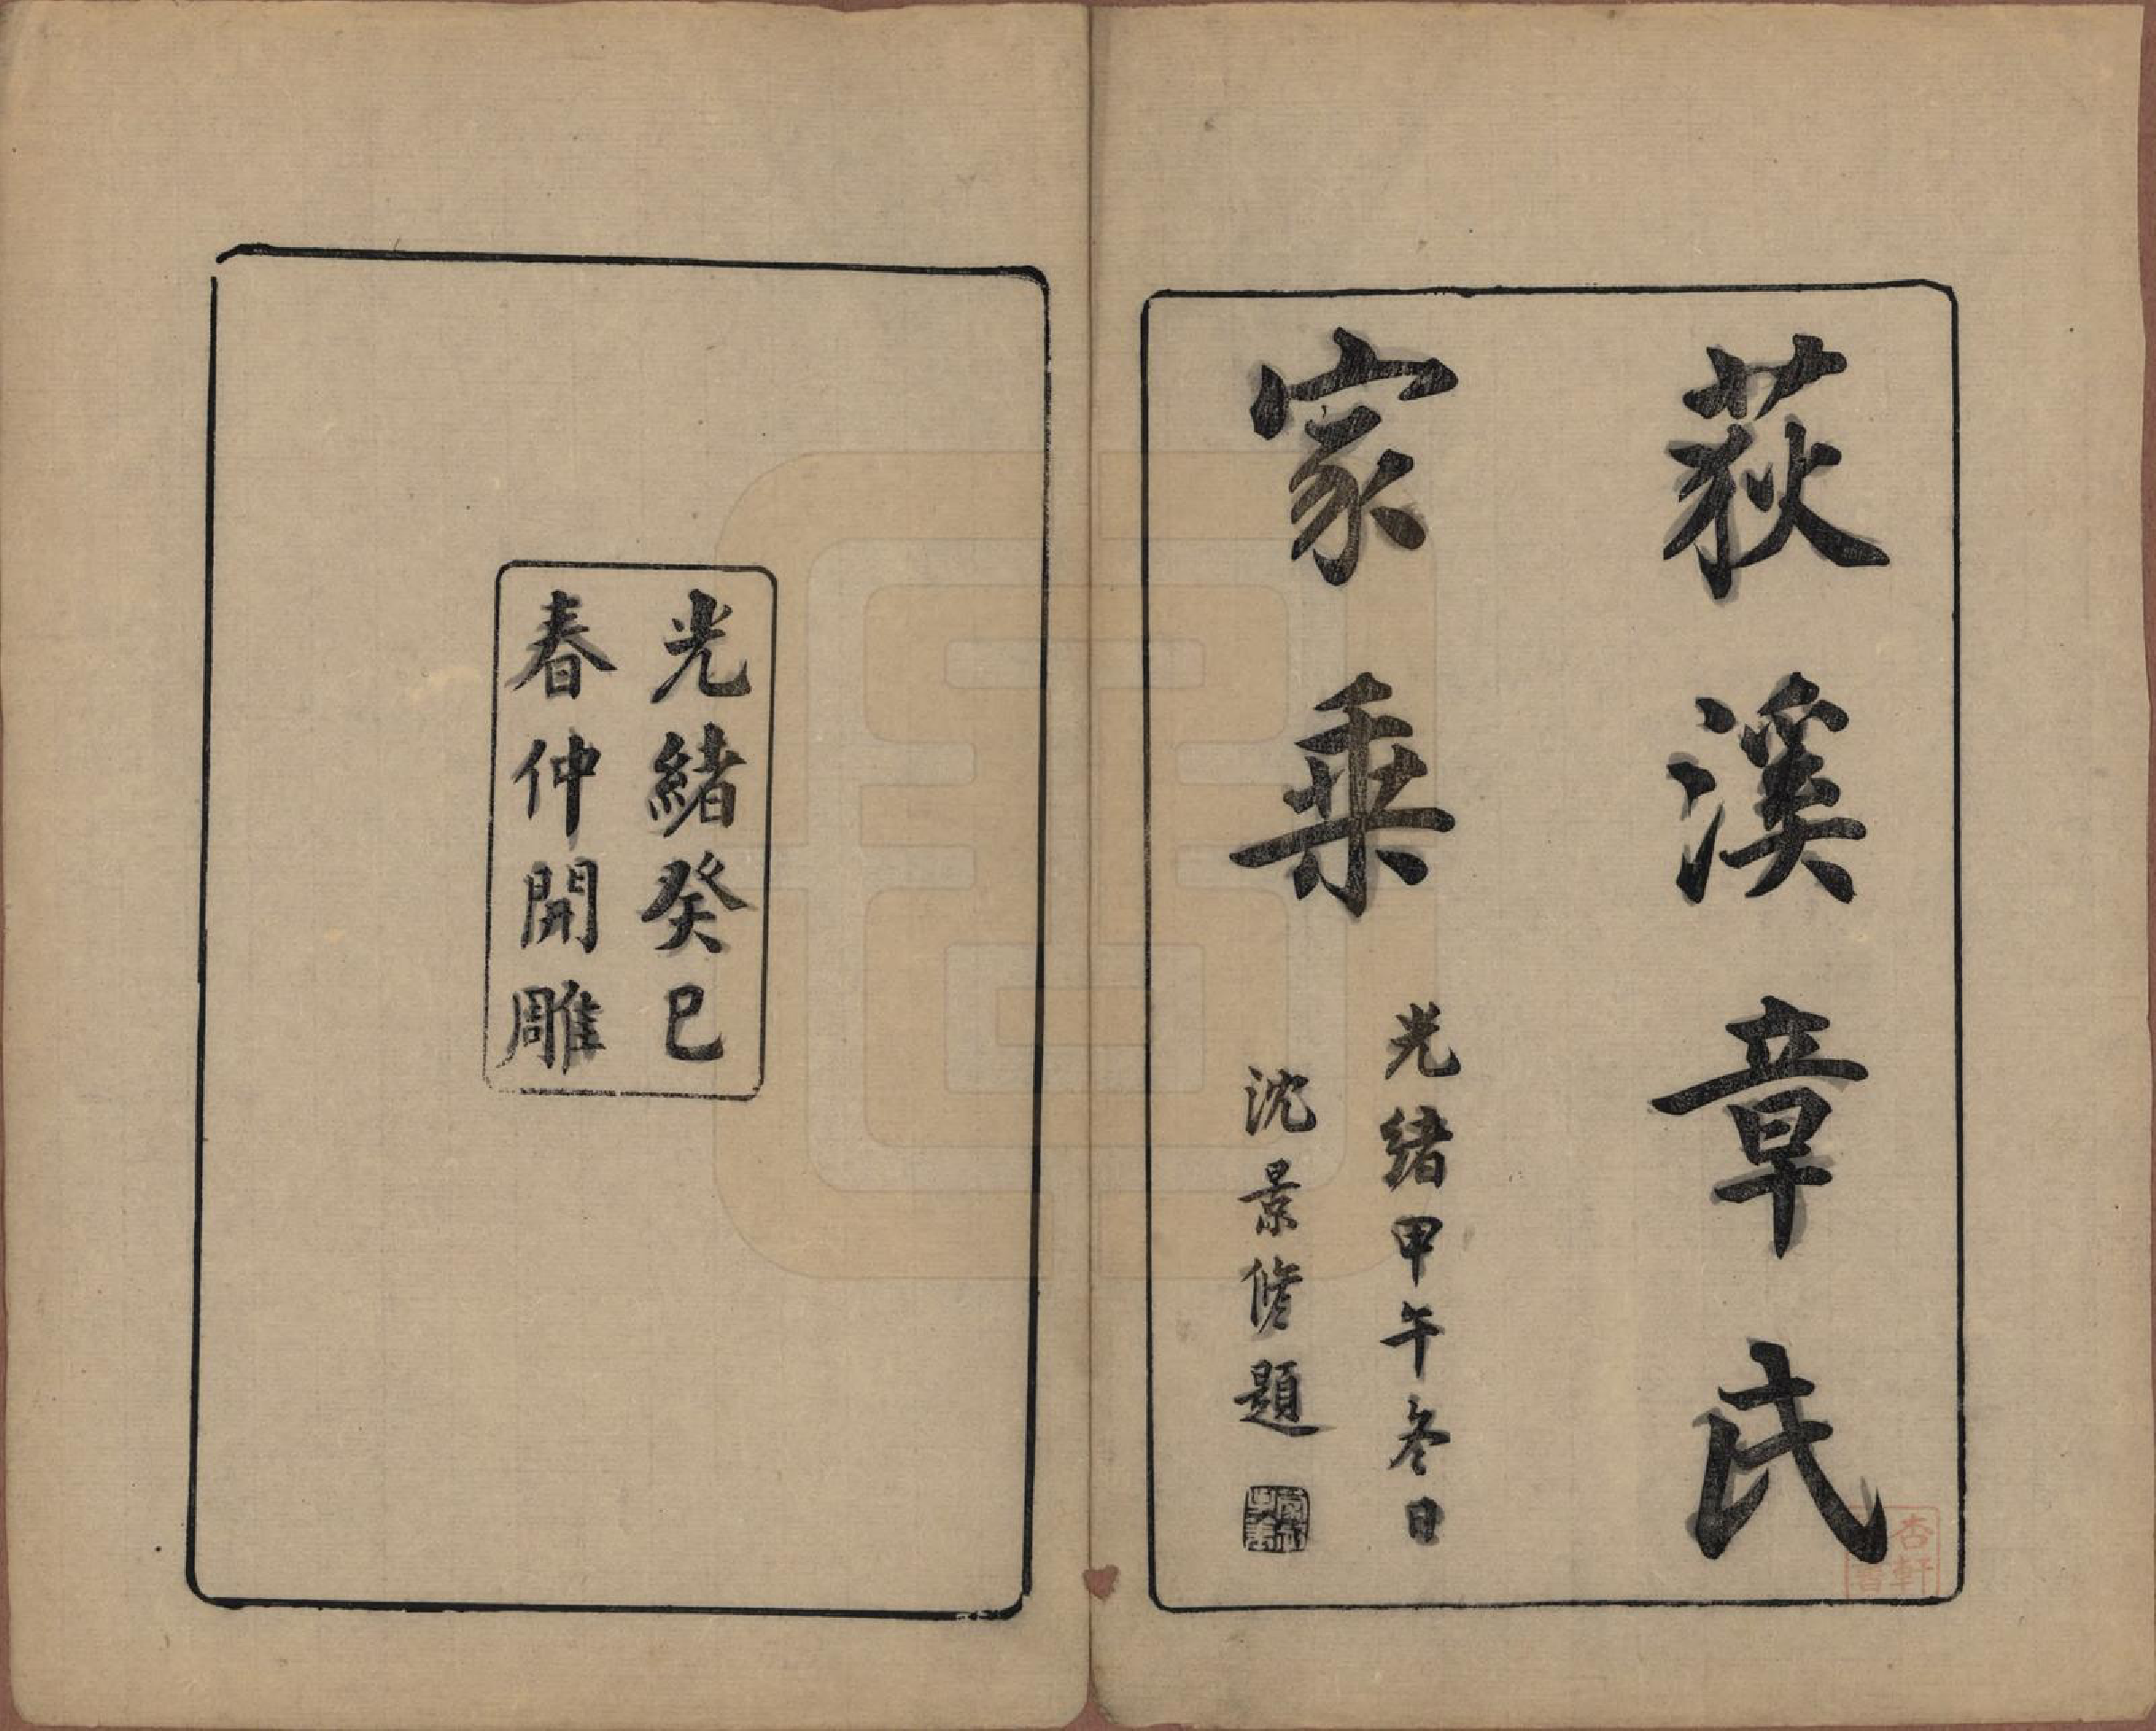 荻溪章氏
家乘
光緒甲午冬日
沈景修題
光緒癸巳
春仲開雕